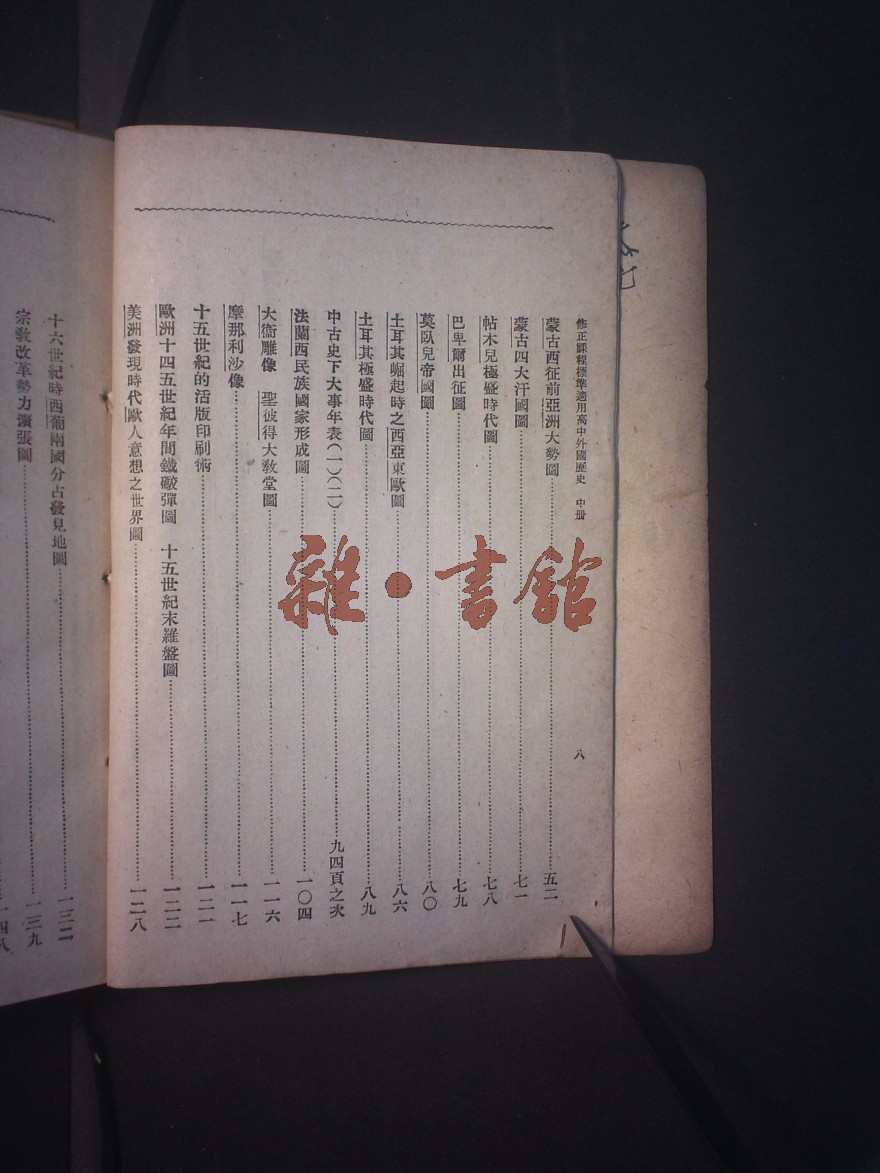 修正課程標準適用高中外國歷史　中册　八
蒙古西征前亞洲大勢圖……五二
蒙古四大汗國圖……七一
帖木兒極盛時代圖……七八
巴卑爾出征圖……七九
莫臥兒帝國圖……八〇
土耳其崛起時之西亞東歐圖……八六
土耳其極盛時代圖……八九
中古史下大事年表(一)(二)……九四頁之次
法蘭西民族國家形成圖……一〇四
大衞雕像　聖彼得大敎堂圖……一一六
摩那利沙像……一一七
十五世紀的活版印刷術……一二一
歐洲十四五世紀年間鐵礮彈圖　十五世紀末羅盤圖……一二二
美洲發現時代歐人意想之世界圖……一二八
十六世紀時西葡兩國分占發見地圖……一三二
宗敎改革勢力擴張圖……一三九
一四八
雜·書館